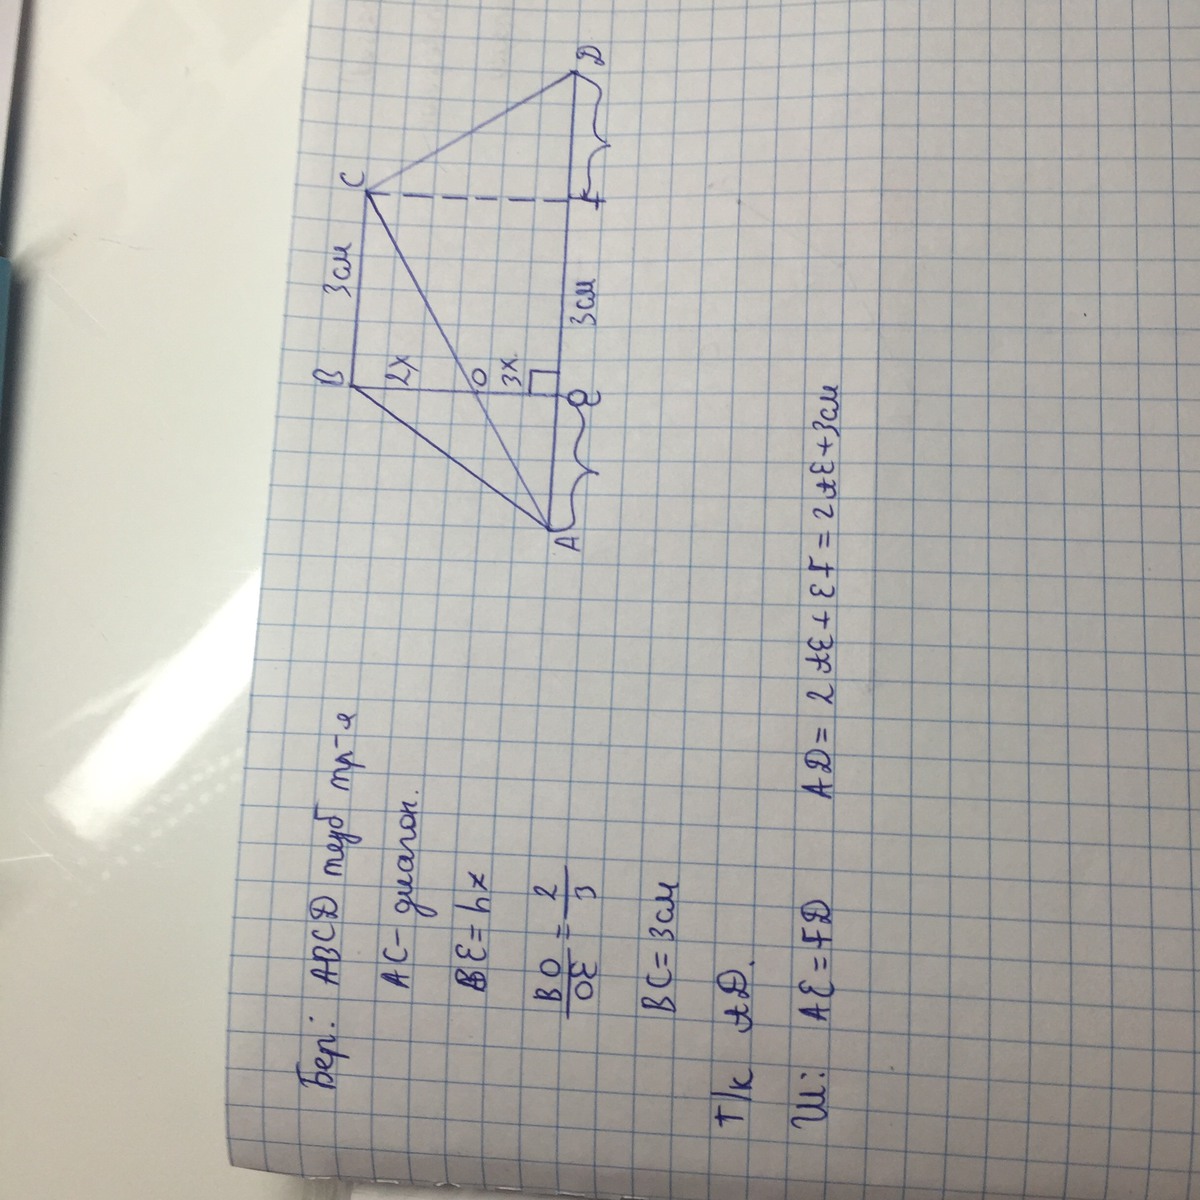 Бер: ABCD теңб тр-я
AC - диагон.
BE = h x
BO/OE = 2/3
BC = 3см
Т/к AD.
Ш: AE = FD AD = 2AE + EF = 2AE + 3см
B 3см C
2x
O
3x
A E 3см F D